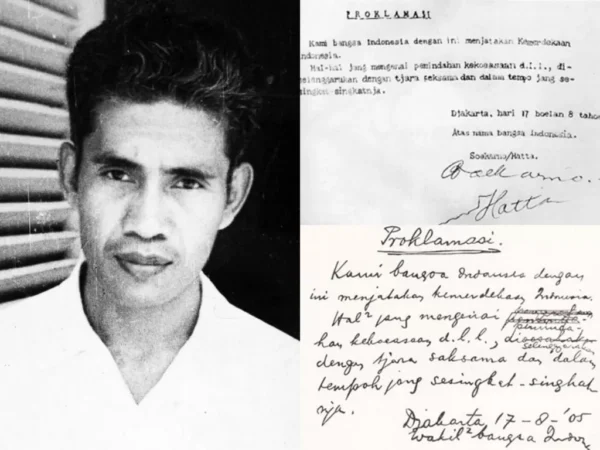 PROKLAMASI
Kami bangsa Indonesia dengan ini menjatakan Kemerdekaan
Indonesia.
Hal-hal jang mengenai pemindahan kekoeasaan d.l.l., di-
selenggarakan dengan tjara seksama dan dalam tempo jang se-
singkat-singkatnja.
Djakarta, hari 17 boelan 8 tahoe
Atas nama bangsa Indonesia.
Soekarno/Hatta.
Soekarno.
Hatta
Proklamasi.
Kami bangsa Indonesia dengan
ini menjatakan kemerdekaan Indonesia.
Hal² jang mengenai
peminda-
han kekoeasaan d.l.l.,
diselenggarakan
dengan tjara saksama dan dalam
tempoh jang sesingkat-singkat
nja.
Djakarta, 17-8-'05
Wakil² bangsa Indon